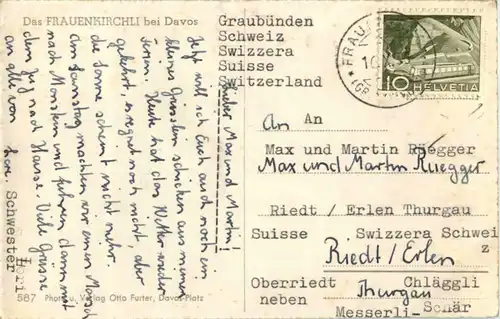 Das FRAUENKIRCHLI bei Davos
Graubünden
Schweiz
Svizzera
Suisse
Switzerland
FRAU
10
HELVETIA
Lieber Max und Martin!
Jetzt will ich Euch auch noch ein
kleines Grüsslein schicken aus meinen
Ferien. Heute hat das Wetter wieder
gekehrt, es regnet noch nicht, aber
die Sonne scheint nicht mehr.
Am Samstag machten wir einen Marsch
nach Monstein und fuhren dann mit
dem Zug nach Hause. Viele Grüsse
an alle von Lori.
Schwester Lori
An An
Max und Martin Rüegger
Max und Martin Rüegger
Riedt / Erlen Thurgau
Suisse Svizzera Schwei
z
Riedt/Erlen
Oberriedt Chläggli
Thurgau
neben Schär
Messerli-
587 Photo u. Verlag Otto Furter, Davos-Platz